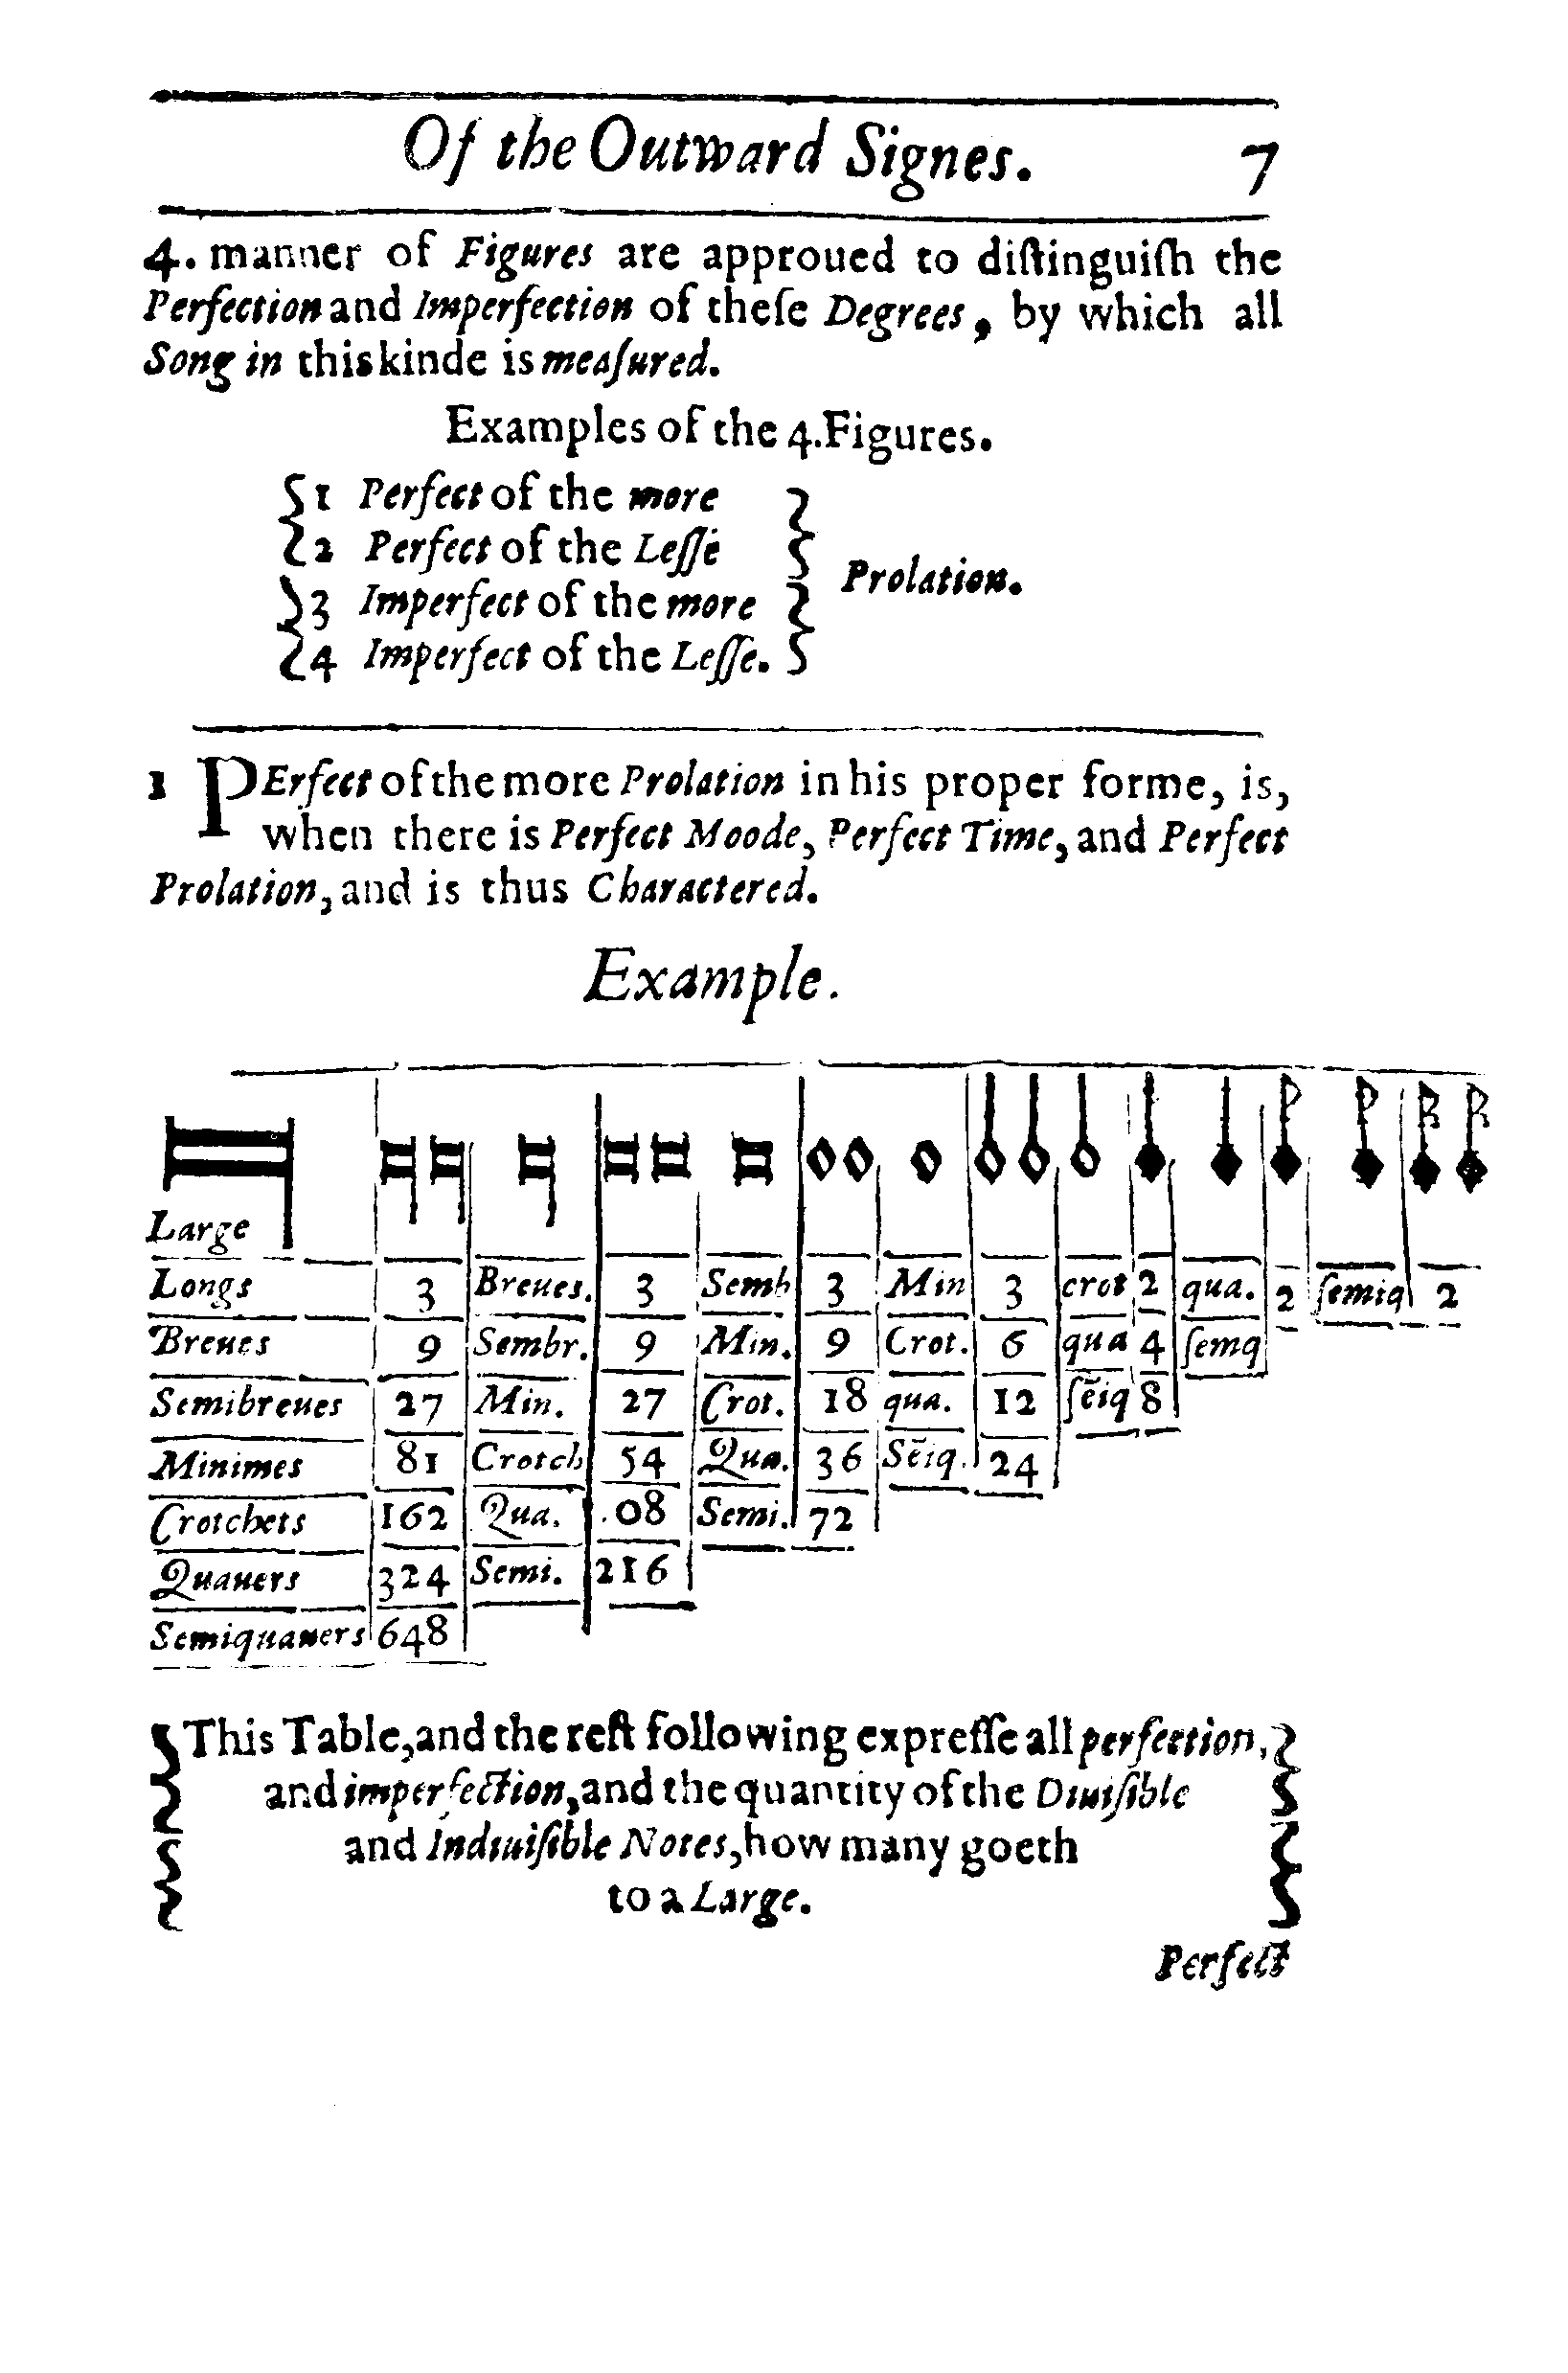 Of the Outward Signes. 7
4. manner of Figures are approued to diſtinguiſh the
Perfection and Imperfection of theſe Degrees, by which all
Song in this kinde is meaſured.
Examples of the 4. Figures.
1 Perfect of the more
2 Perfect of the Leſſe
Prolation.
3 Imperfect of the more
4 Imperfect of the Leſſe.
1 PErfect of the more Prolation in his proper forme, is,
when there is Perfect Moode, Perfect Time, and Perfect
Prolation, and is thus Charactered.
Example.
Large
Longs 3 Breues. 3 Semb 3 Min 3 crot 2 qua. 2 ſemiq 2
Breues 9 Sembr. 9 Min. 9 Crot. 6 qua 4 ſemq
Semibreues 27 Min. 27 Crot. 18 qua. 12 ſēiq 8
Minimes 81 Crotch 54 Qua. 36 Sēiq. 24
Crotchets 162 Qua. .08 Semi. 72
Quauers 324 Semi. 216
Semiquauers 648
This Table, and the reſt following expreſſe all perfection,
and imperfection, and the quantity of the Diuiſible
and Indiuiſible Notes, how many goeth
to a Large.
Perfect